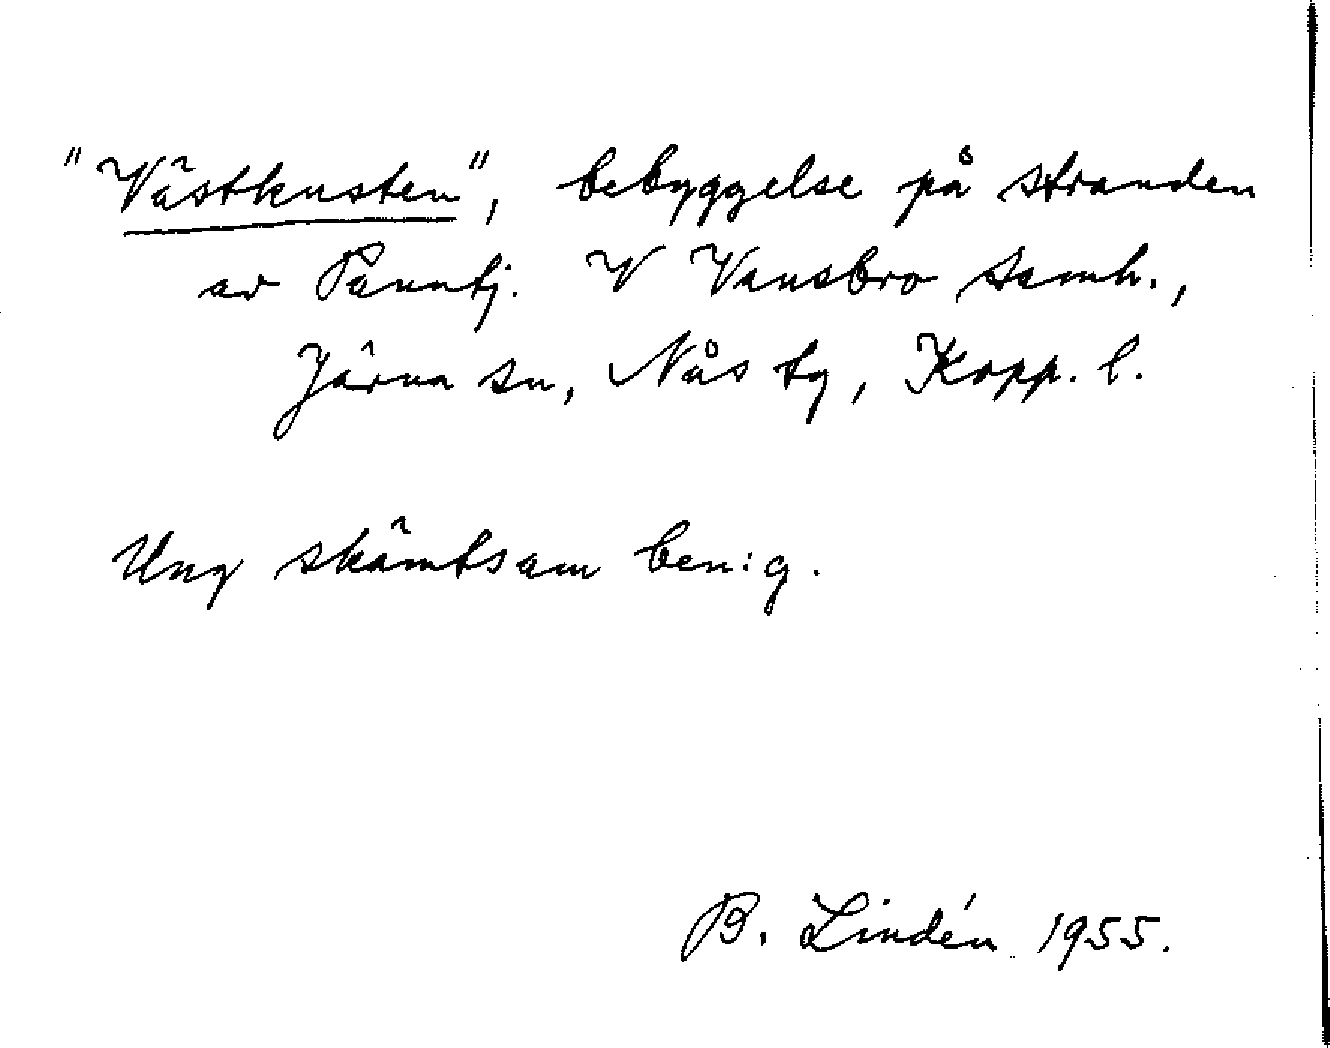 "Västkusten", bebyggelse på stranden
av Panntj. V Vansbro samh.,
Järna sn, Nås tg, Kopp. l.
Ung skämtsam ben:g.
B. Lindén 1955.